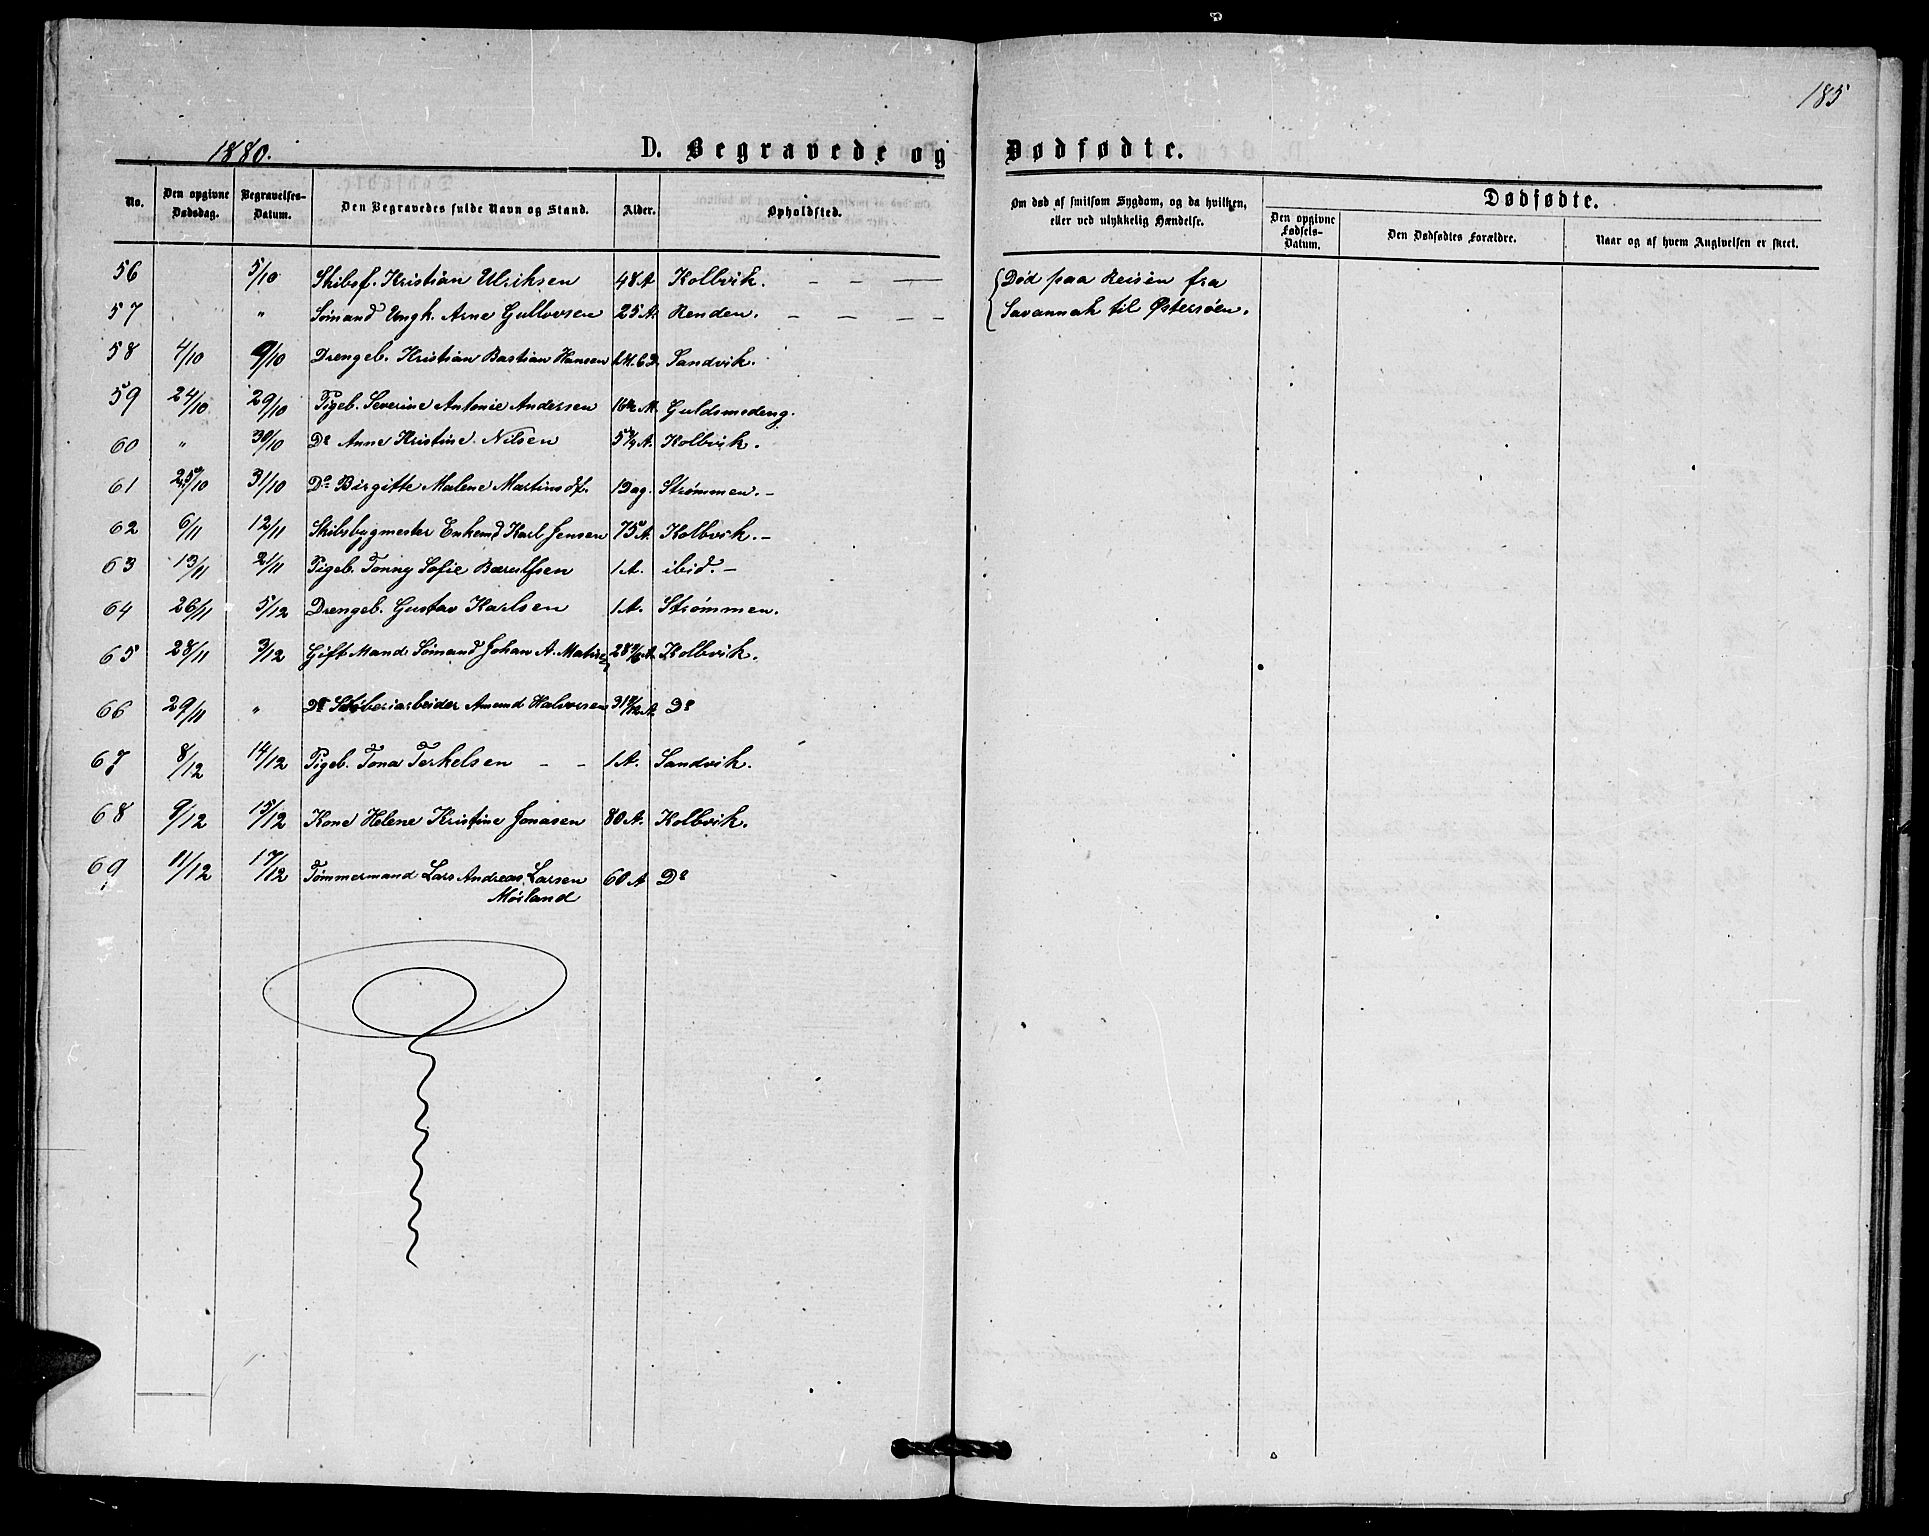 185
1880. D. Begravede og Dødfødte.
No. Den opgivne Dødsdag. Begravelses-Datum. Den Begravedes fulde Navn og Stand. Alder. Opholdsted. Om død af smitsom Sygdom, og da hvilken, eller ved ulykkelig Hændelse. Dødfødte.
Den opgivne Fødsels-Datum. Den Dødfødtes Forældre. Naar og af hvem Angivelsen er skeet.
56 5/10 Skibsf. Kristian Ulriksen 48 A Kolbvik. – – — { Død paa Reisen fra
57 " Sømand Ungk. Arne Gullovsen 25 A. Renden. – — — — Savannah til Østersøen.
58 4/10 9/10 Drengeb. Kristian Bastian Hansen 6 D. Sandvik.
59 24/10 29/10 Pigeb. Severine Antonie Andersen Guldsmedeng.
60 " 30/10 Do Anne Kristine Nilsen Kolbvik.
61 25/10 31/10 Do Birgitte Malene Martinsdt. 1 Dag. Strømmen. –
62 6/11 12/11 Skibsbygmester Enkemd Karl Jensen 75 A. Kolbvik. –
63 13/11 2/11 Pigeb. Tonny Sofie Bærulfsen 1 A. ibid. –
64 26/11 5/12 Drengeb. Gustav Karlsen 1 A. Strømmen.
65 28/11 3/12 Gift Mand Sømand Johan A. Kolbvik.
66 29/11 " Do Amund Halvorsen Do
67 8/12 14/12 Pigeb. Tona Terkelsen – – 1 A. Sandvik.
68 9/12 15/12 Kone Helene Kristine Jonasen 80 A. Kolbvik.
69 11/12 17/12 Tømmermand Lars Andreas Larsen 60 A Do
Møsland